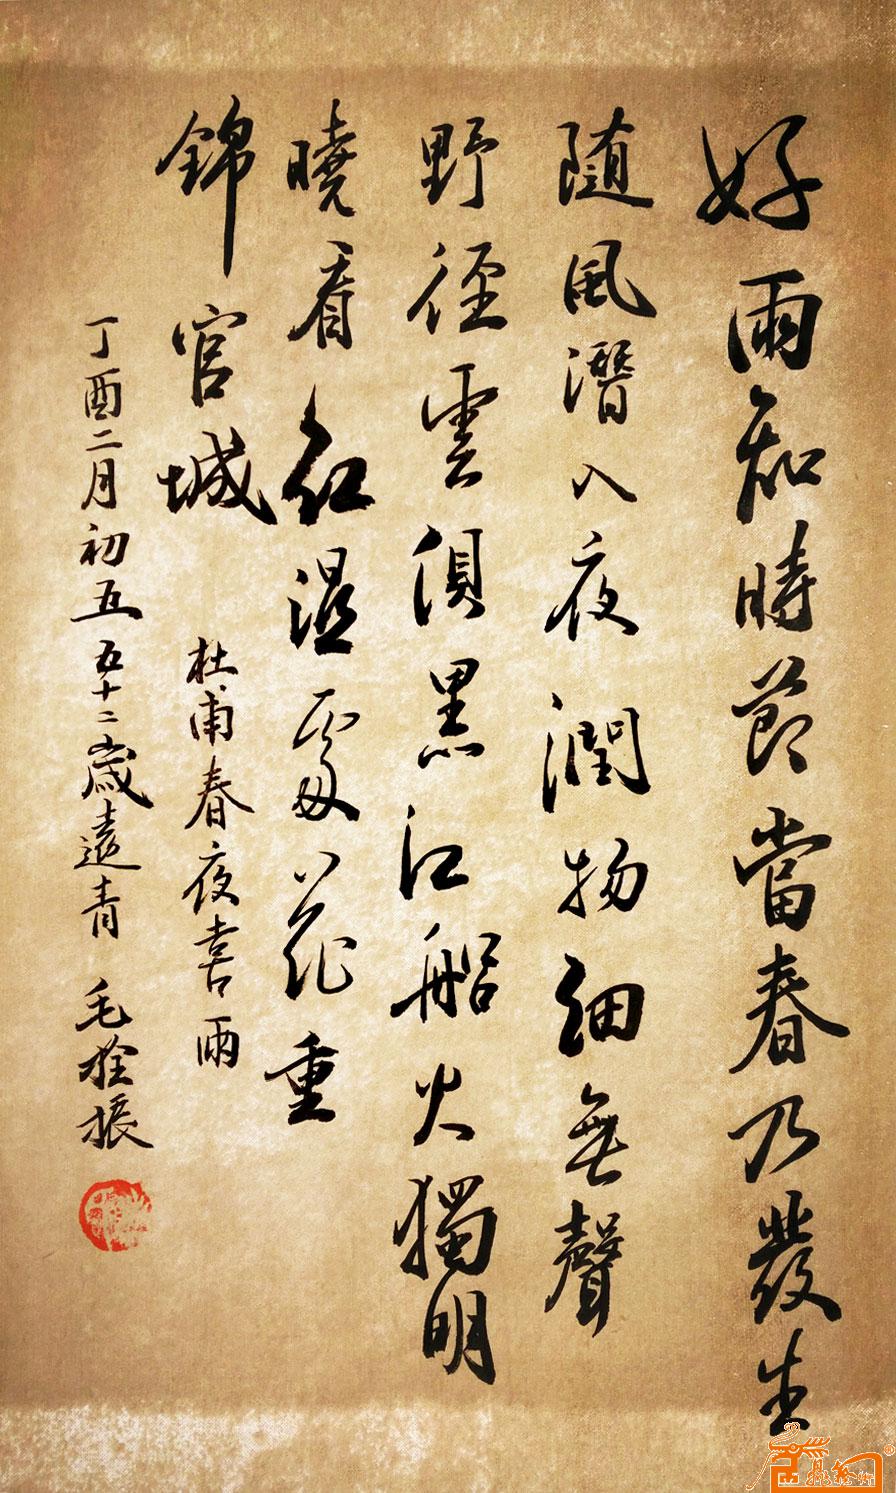 好雨知時節當春乃發生
随風潛入夜潤物細無聲
野徑雲俱黑江船火獨明
曉看紅濕處花重
錦官城
杜甫春夜喜雨
丁酉二月初五五十二歲遠青毛栓振